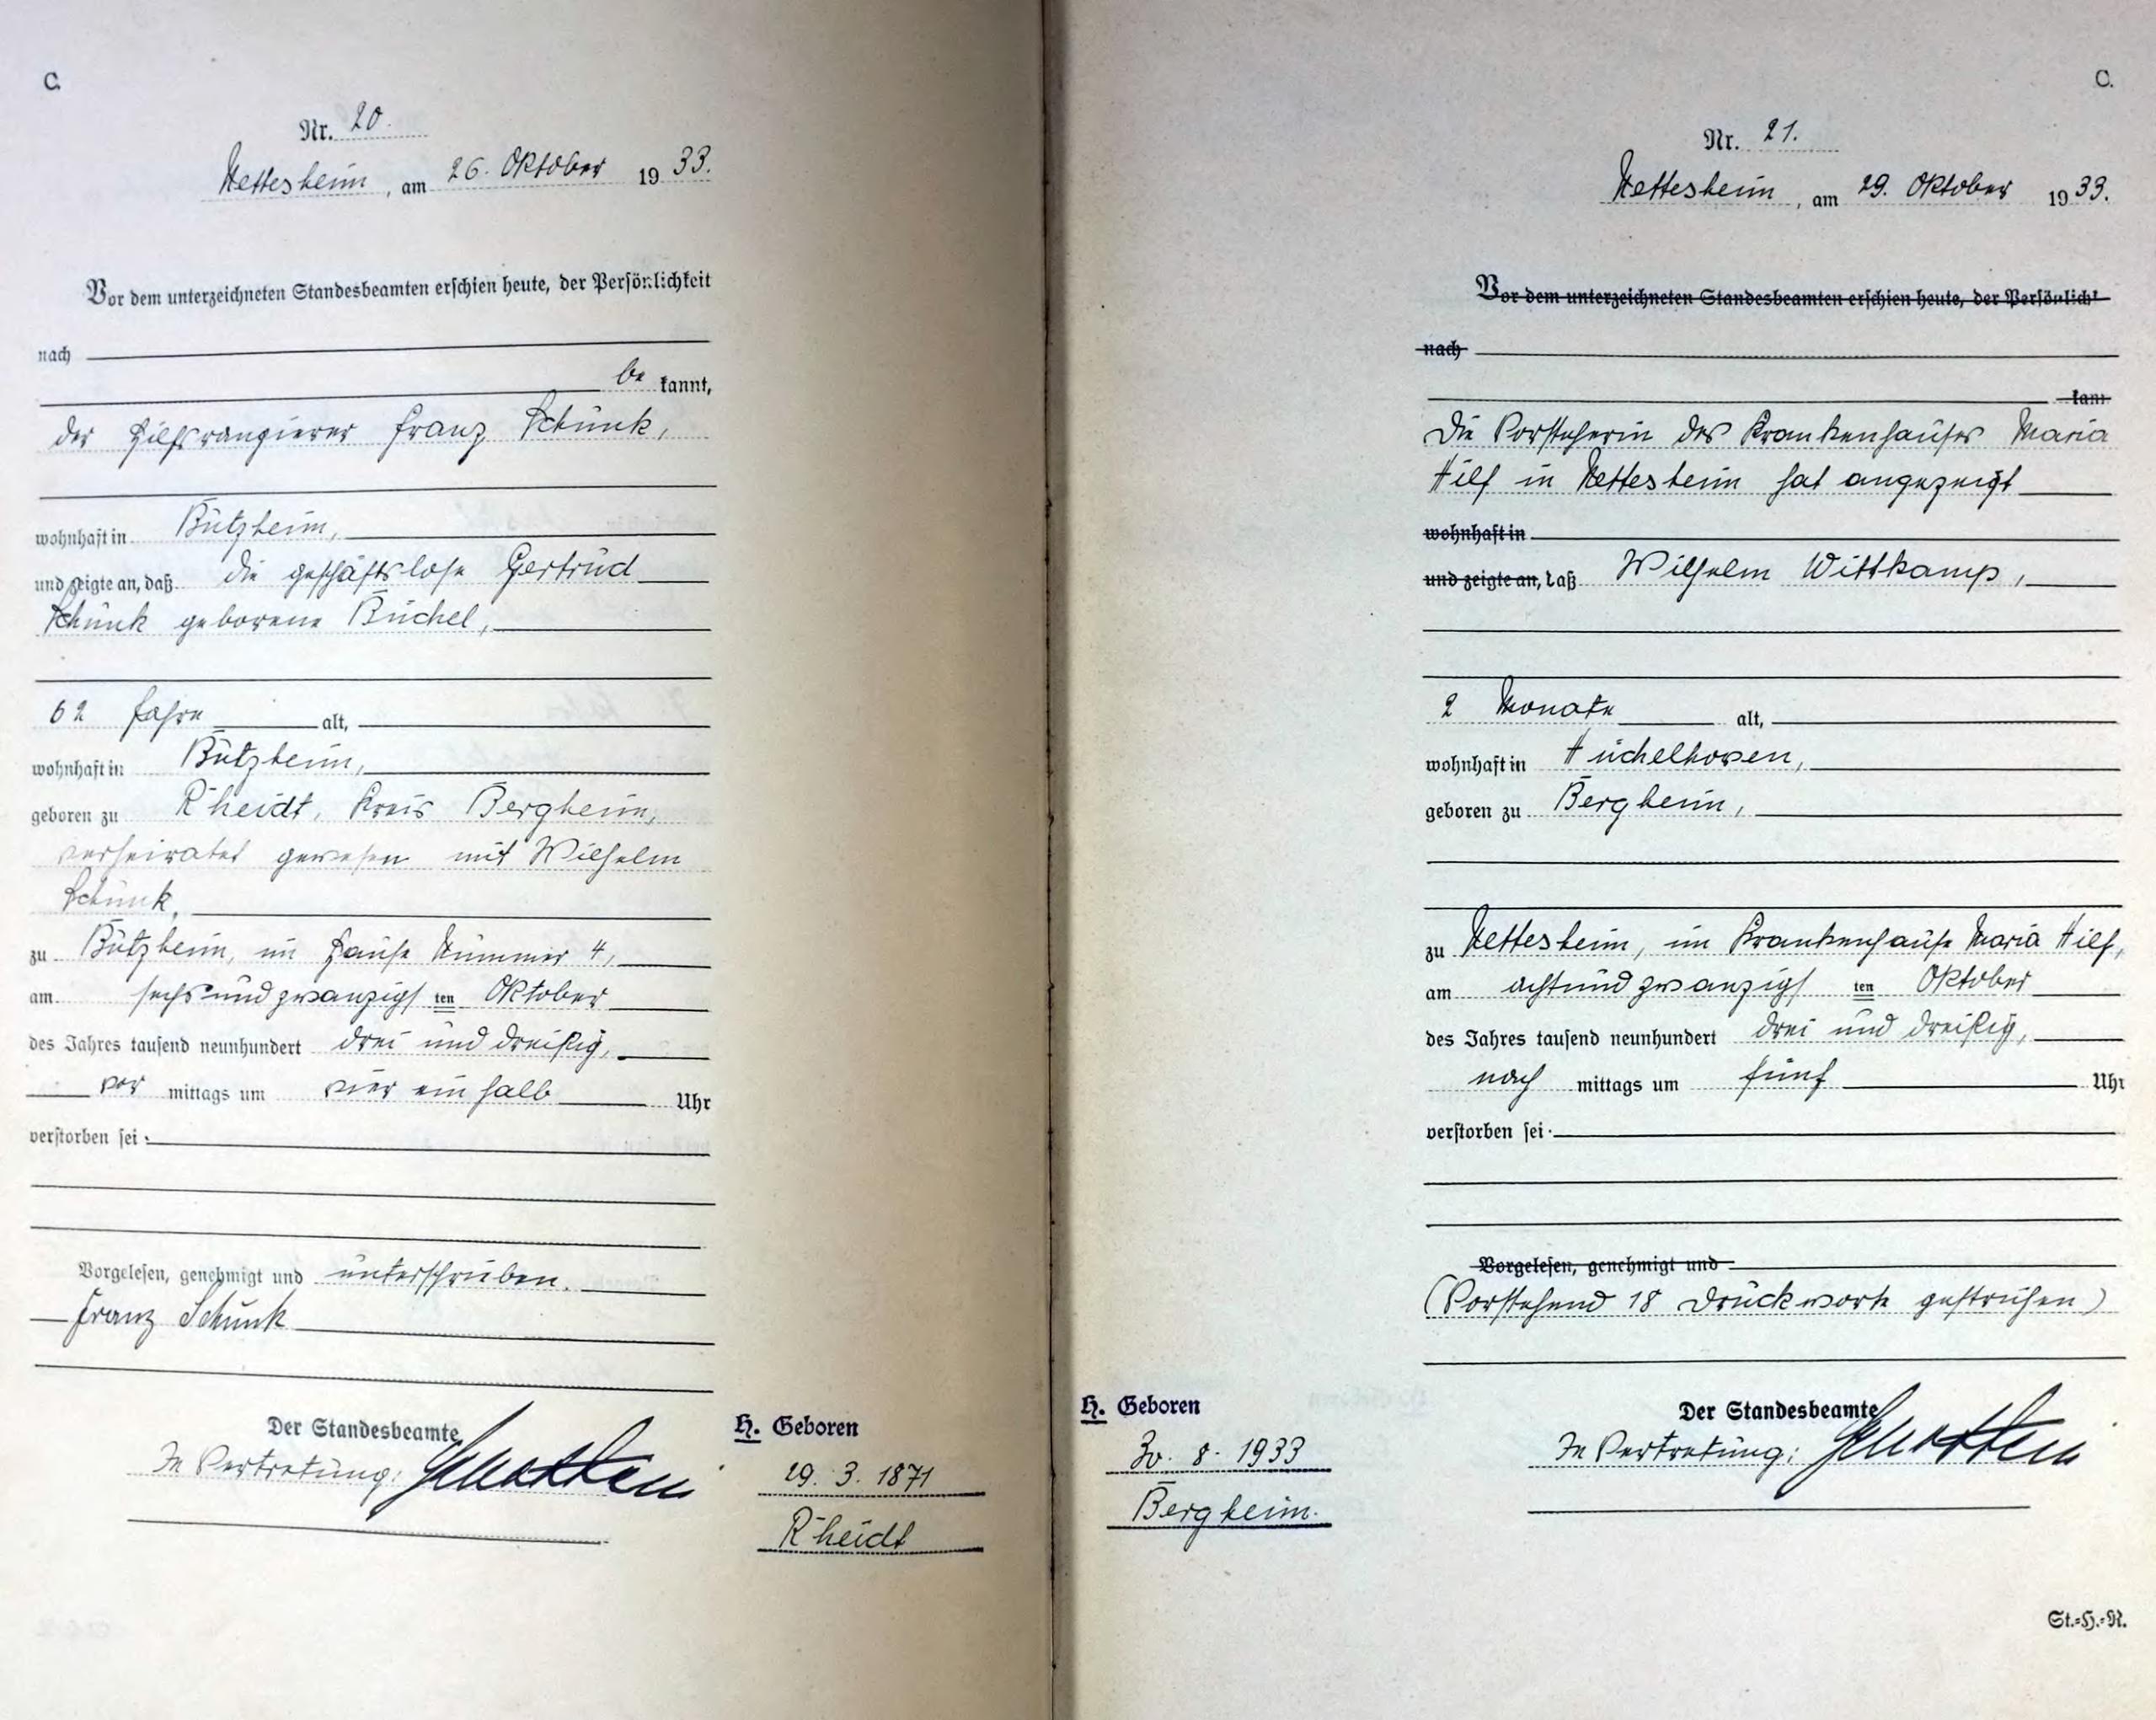 C.
Nr. 20.
Nettesheim, am 26. Oktober 1933.
Vor dem unterzeichneten Standesbeamten erschien heute, der Persönlichkeit
nach
be kannt,
der Hilfsrangierer Franz Schunk,
wohnhaft in Bützheim,
und zeigte an, daß die geschäftslose Gertrud
Schunk geborene Büchel,
62 Jahre alt,
wohnhaft in Bützheim,
geboren zu Rheidt, Kreis Bergheim,
verheiratet gewesen mit Wilhelm
Schunk,
zu Bützheim, im Hause Nummer 4,
am sechsundzwanzigsten Oktober
des Jahres tausend neunhundert drei und dreißig,
vor mittags um vier ein halb Uhr
verstorben sei.
Vorgelesen, genehmigt und unterschrieben.
Franz Schunk
Der Standesbeamte
In Vertretung:
H. Geboren
29. 3. 1871
Rheidt
C.
Nr. 21.
Nettesheim, am 29. Oktober 1933.
Vor dem unterzeichneten Standesbeamten erschien heute, der Persönlich
nach
kann
Die Vorsteherin des Krankenhauses Maria
Hilf in Nettesheim hat angezeigt
wohnhaft in
und zeigte an, daß Wilhelm Wittkamp,
2 Monate alt,
wohnhaft in Hüchelhoven,
geboren zu Bergheim,
zu Nettesheim, im Krankenhause Maria Hilf,
am achtundzwanzigsten Oktober
des Jahres tausend neunhundert drei und dreißig,
nach mittags um fünf Uhr
verstorben sei.
Vorgelesen, genehmigt und
(Vorstehend 18 Druckworte gestrichen)
Der Standesbeamte
In Vertretung:
H. Geboren
30. 8. 1933
Bergheim.
St.-H.-R.